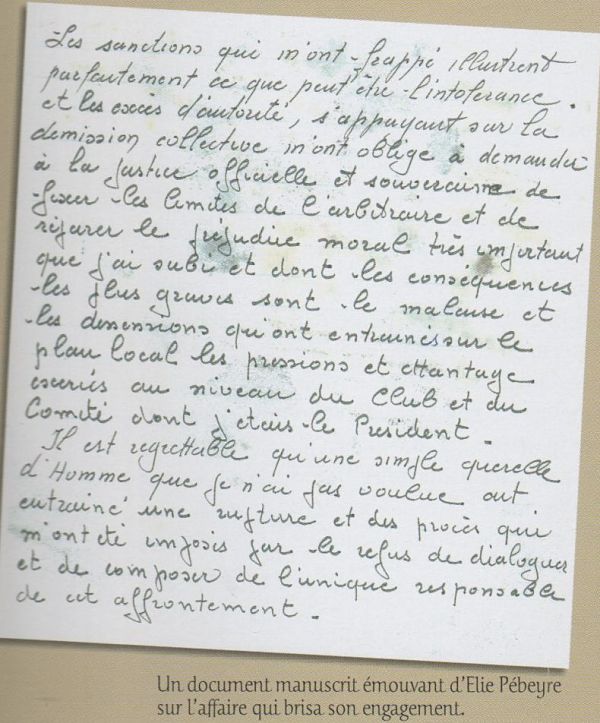 Les sanctions qui m'ont frappé illustrent
parfaitement ce que peut être l'intolerance.
et les excès d'autorité, s'appuyant sur la
demission collective m'ont oblige à demander
à la justice officielle et souveraine de
fixer les limites de l'arbitraire et de
réparer le préjudice moral très important
que j'ai subi et dont les conséquences
les plus graves sont le malaise et
les dissensions qu'ont entrainés sur le
plan local les pressions et chantage
exercés au niveau du Club et du
Comité dont j'étais le President.
Il est regrettable qu'une simple querelle
d'Homme que je n'ai pas voulue ait
entrainé une rupture et des procès qui
m'ont été imposés par le refus de dialoguer
et de composer de l'unique responsable
de cet affrontement.
Un document manuscrit émouvant d'Elie Pébeyre
sur l'affaire qui brisa son engagement.